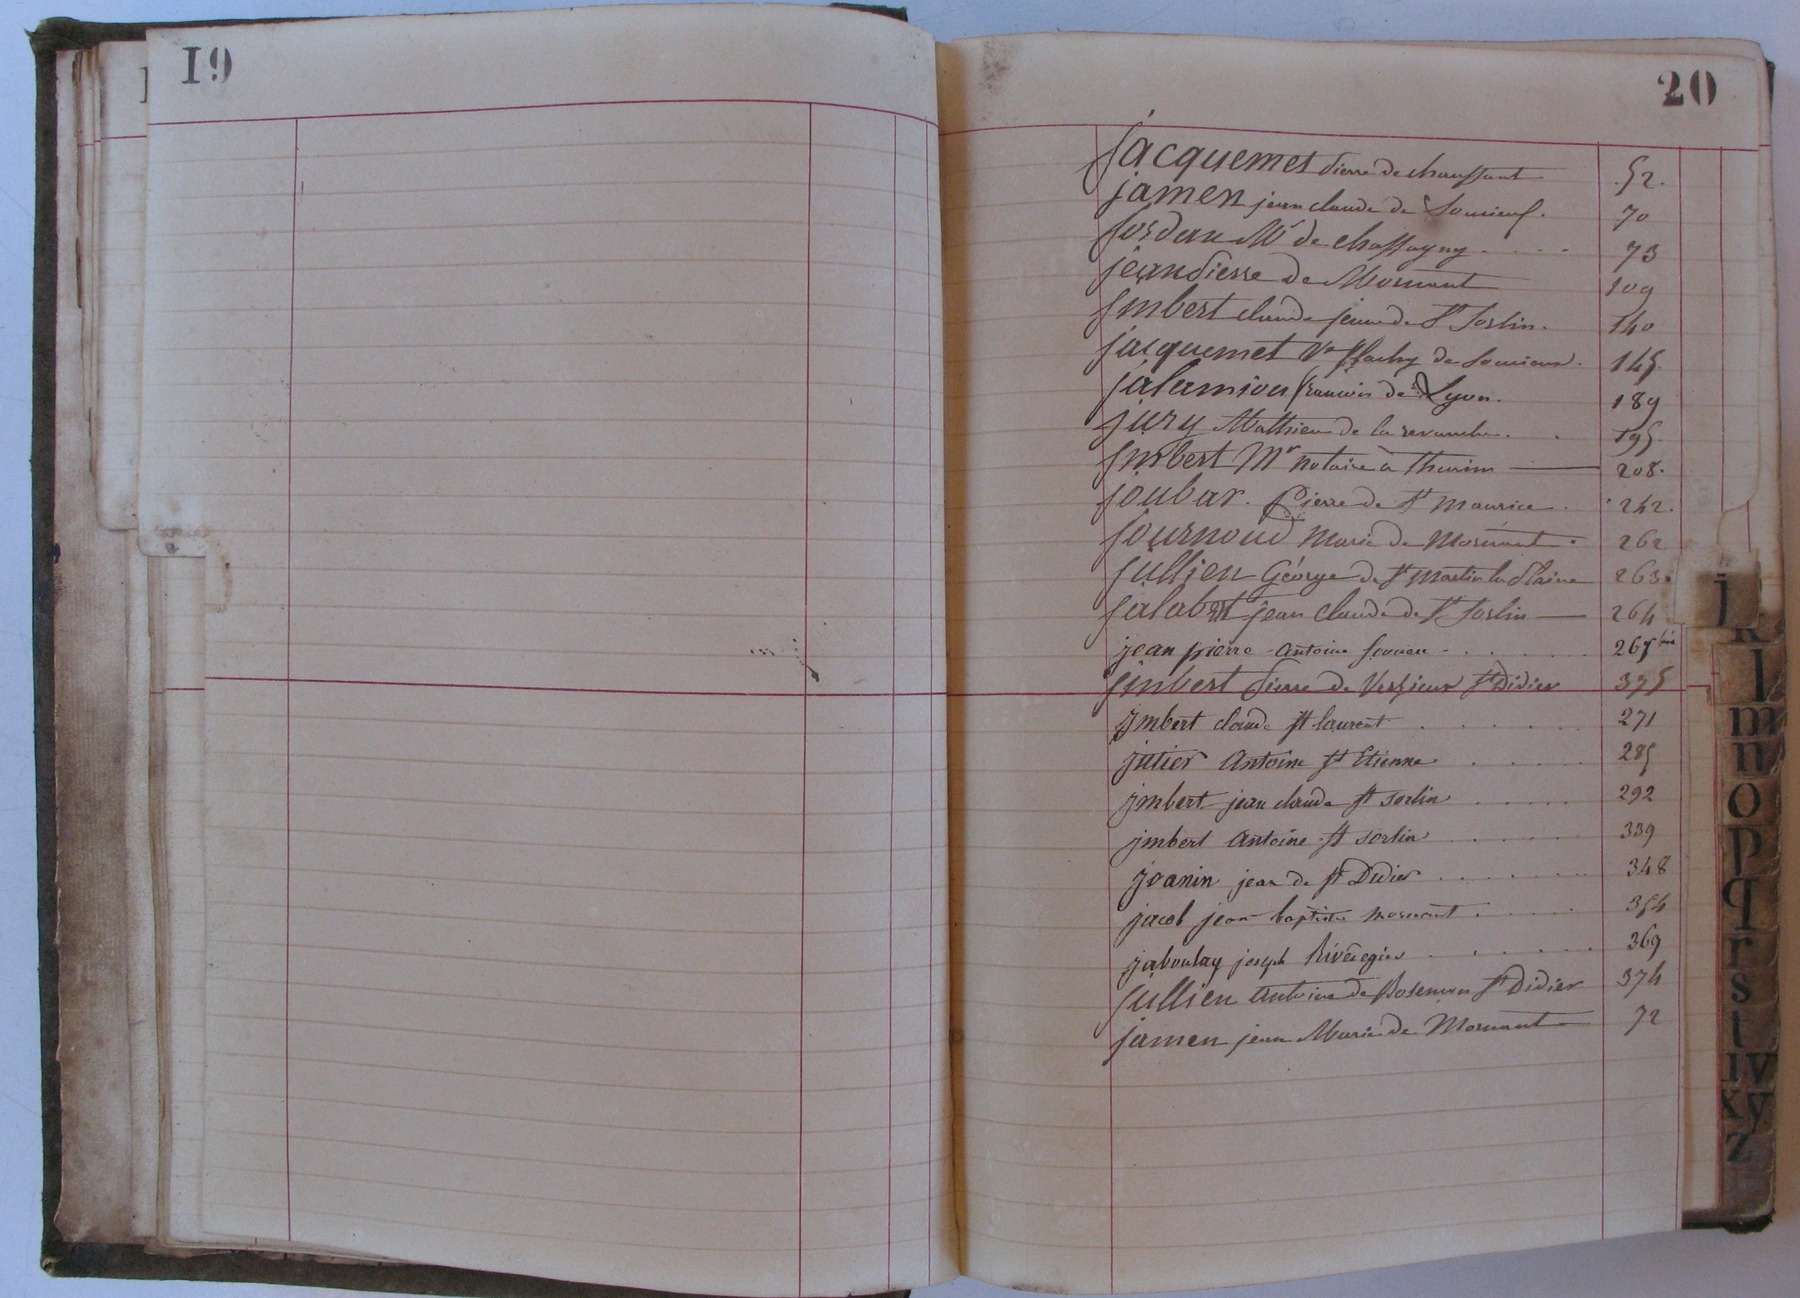 19
20
Jacquemet Pierre de chaussant 52.
jamen jean claude de Soucieuf. 70
Jordan Mr de chassagny 73
jeanpierre de Mornant 109
Imbert claude jeune de St Sorlin. 140
jacquemet Ve de Soucieux. 145.
jalamion francois de Lyon. 189
jury Mathieu de la 195.
Imbert Mr notaire à Thurins 208.
joubar. Pierre de St Maurice. 242.
Journoud Marie de Mornant. 262
Jullien George de St Martin la Plaine 263.
Jalabert jean Claude de St Sorlin 264
jean pierre Antoine 265 bis
jmbert Pierre de St Didier 375
jmbert claude St laurent 271
jutier Antoine St Etienne 285
jmbert jean claude St Sorlin 292
jmbert Antoine St Sorlin 339
joanin jean de St Didier 348
jacob jean baptiste mornant 354
jaboulay joseph Riverie 369
Jullien Antoine de St Didier 374
jamen jean Marie de Mornant 72
j
l
m
n
o
p
q
r
s
t
v
x y
z